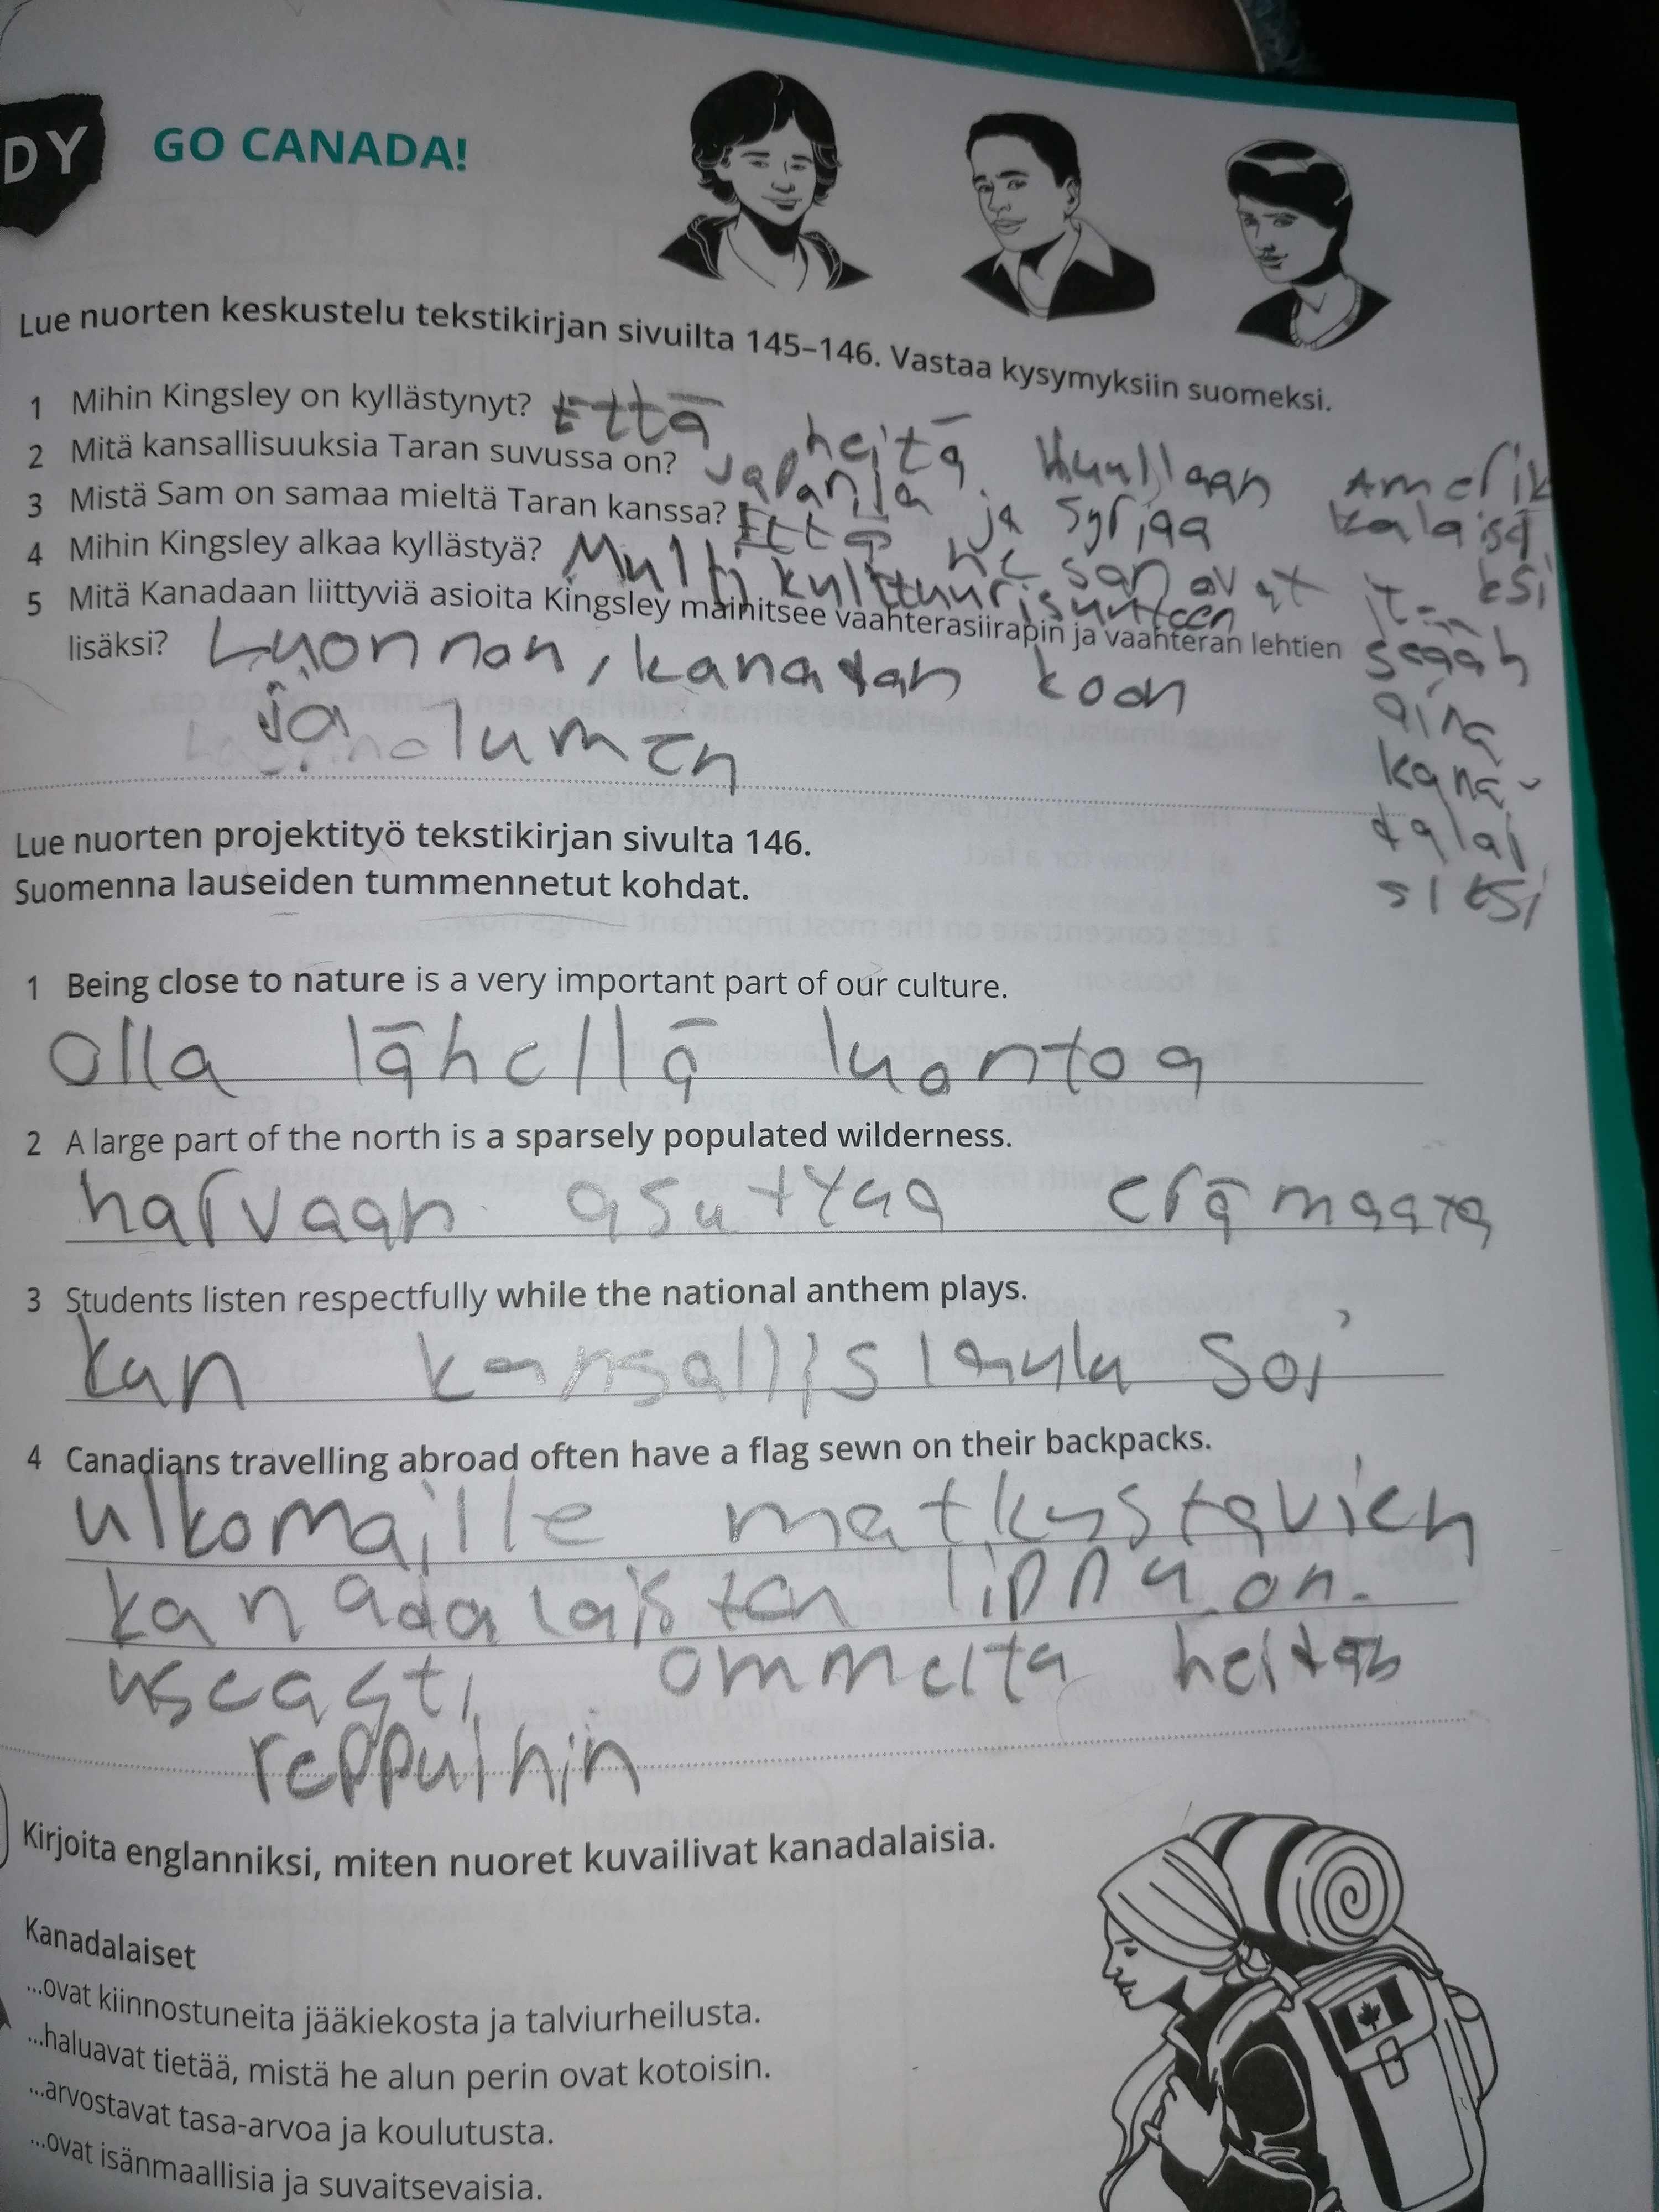 DY
GO CANADA!
Lue nuorten keskustelu tekstikirjan sivuilta 145–146. Vastaa kysymyksiin suomeksi.
1 Mihin Kingsley on kyllästynyt? Että heitä luullaan amerik
kalaisi
ksi
2 Mitä kansallisuuksia Taran suvussa on? Japania ja Syriaa
3 Mistä Sam on samaa mieltä Taran kanssa? Että he sanovat it
seään
aina
kana
dalai
siksi
4 Mihin Kingsley alkaa kyllästyä? Multi kulttuurisuuteen
5 Mitä Kanadaan liittyviä asioita Kingsley mainitsee vaahterasiirapin ja vaahteran lehtien
lisäksi? Luonnon, kanadan koon
ja lumen
Lue nuorten projektityö tekstikirjan sivulta 146.
Suomenna lauseiden tummennetut kohdat.
1 Being close to nature is a very important part of our culture.
olla lähellä luontoa
2 A large part of the north is a sparsely populated wilderness.
harvaan asuttuaa erämaata
3 Students listen respectfully while the national anthem plays.
kun kansallislaulu soi
4 Canadians travelling abroad often have a flag sewn on their backpacks.
ulkomaille matkustavien
kanadalaisten lippu on
useasti ommeltu heidän
reppuihin
Kirjoita englanniksi, miten nuoret kuvailivat kanadalaisia.
Kanadalaiset
...ovat kiinnostuneita jääkiekosta ja talviurheilusta.
...haluavat tietää, mistä he alun perin ovat kotoisin.
...arvostavat tasa-arvoa ja koulutusta.
...ovat isänmaallisia ja suvaitsevaisia.